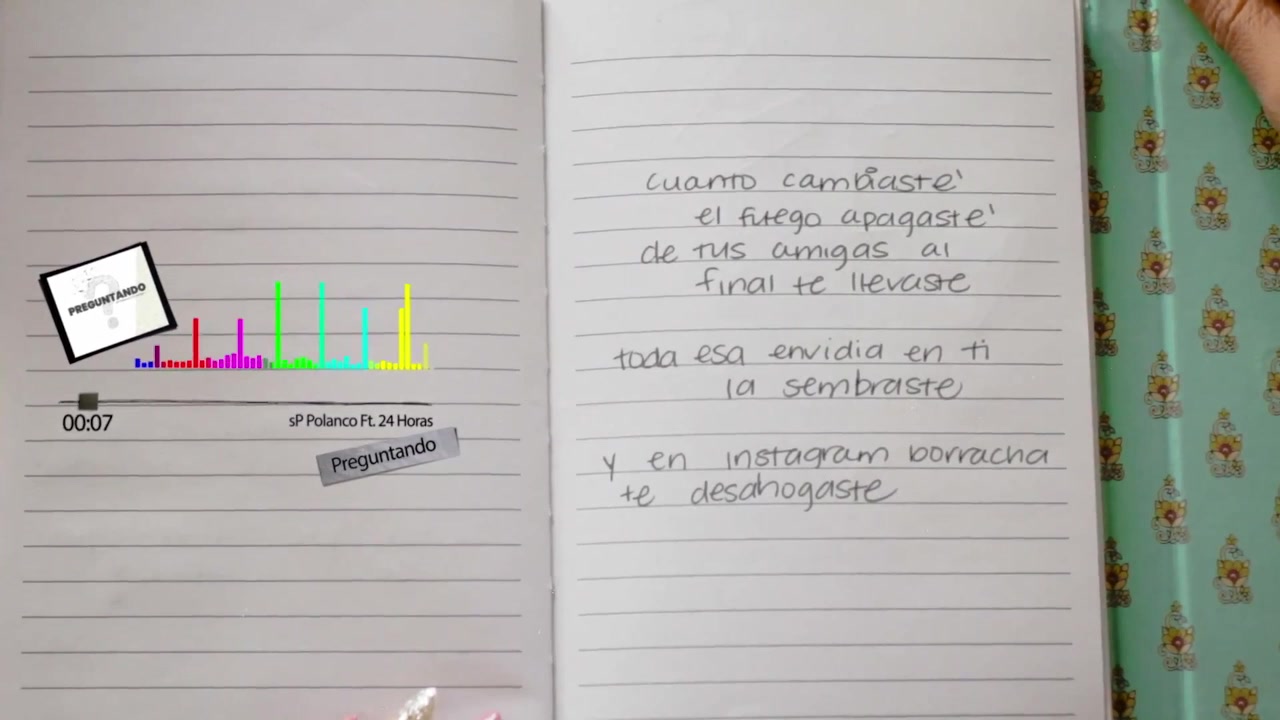 PREGUNTANDO
00:07
sP Polanco Ft. 24 Horas
Preguntando
cuanto cambiaste'
el fuego apagaste'
de tus amigas al
final te llevaste
toda esa envidia en ti
la sembraste
y en instagram borracha
te desahogaste